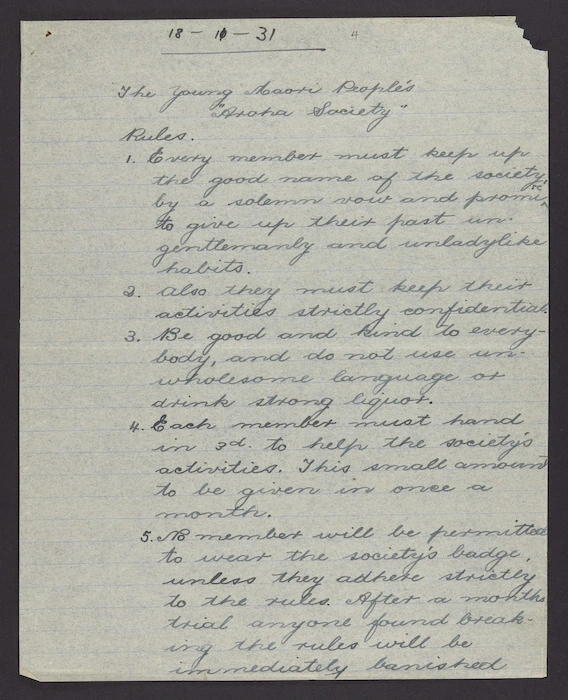 18 - 11 - 31
4
The Young Maori People's
"Aroha Society"
Rules.
1. Every member must keep up
the good name of the society,
by a solemn vow and promise
to give up their past un-
gentlemanly and unladylike
habits.
2. Also they must keep their
activities strictly confidential.
3. Be good and kind to every-
body, and do not use un-
wholesome language or
drink strong liquor.
4. Each member must hand
in 3d. to help the society's
activities. This small amount
to be given in once a
month.
5. No member will be permitted
to wear the society's badge,
unless they adhere strictly
to the rules. After a months
trial anyone found break-
ing the rules will be
immediately banished